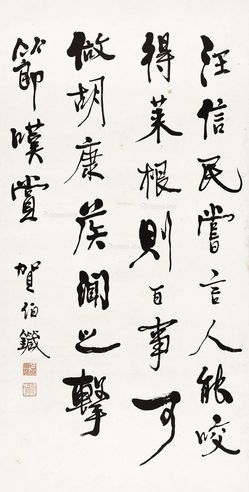 汪信民嘗言人能咬
得菜根則百事可
做胡康侯聞之擊
節嘆賞
賀伯鍼